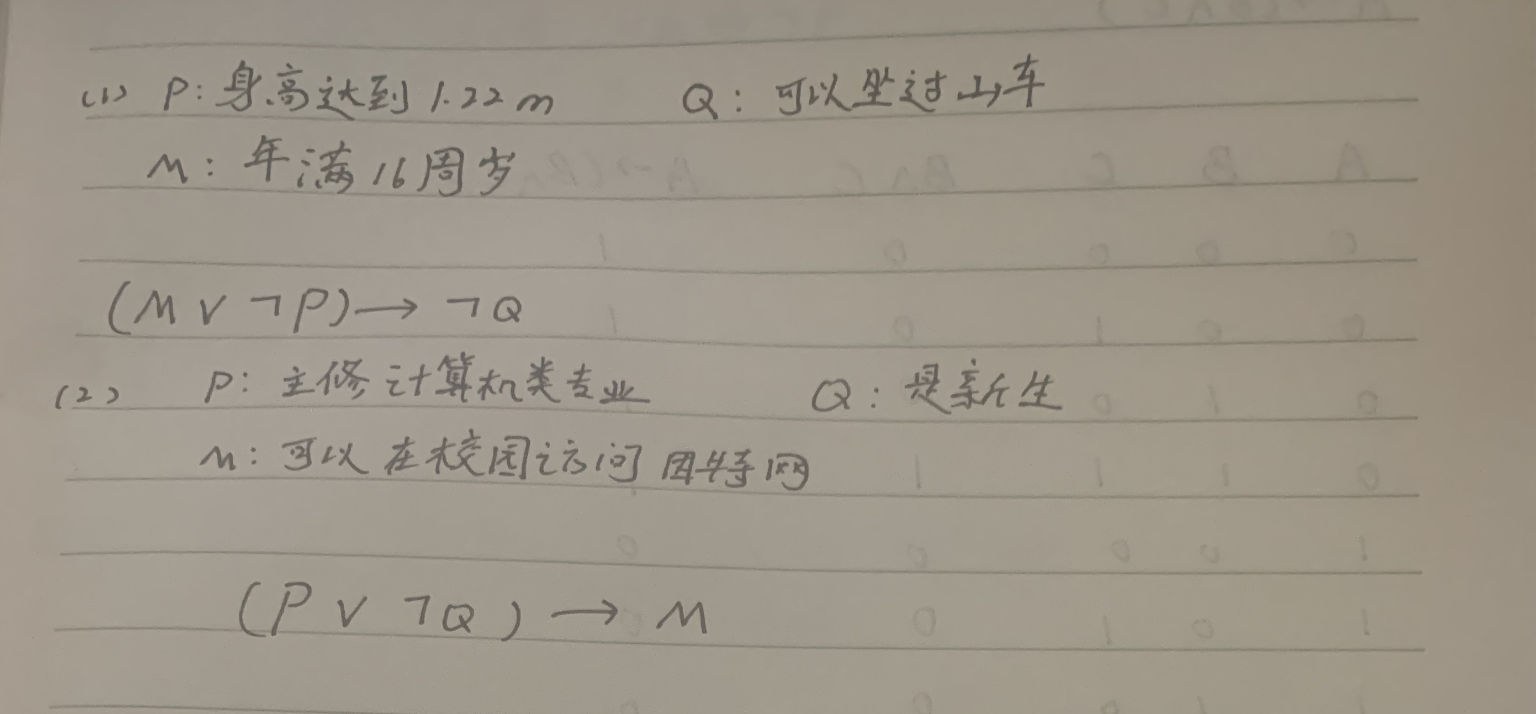 (1) P: 身高达到 1.22 m Q: 可以坐过山车
M: 年满16周岁
(M ∨ ¬P) → ¬Q
(2) P: 主修计算机类专业 Q: 是新生
M: 可以在校园访问因特网
(P ∨ ¬Q) → M